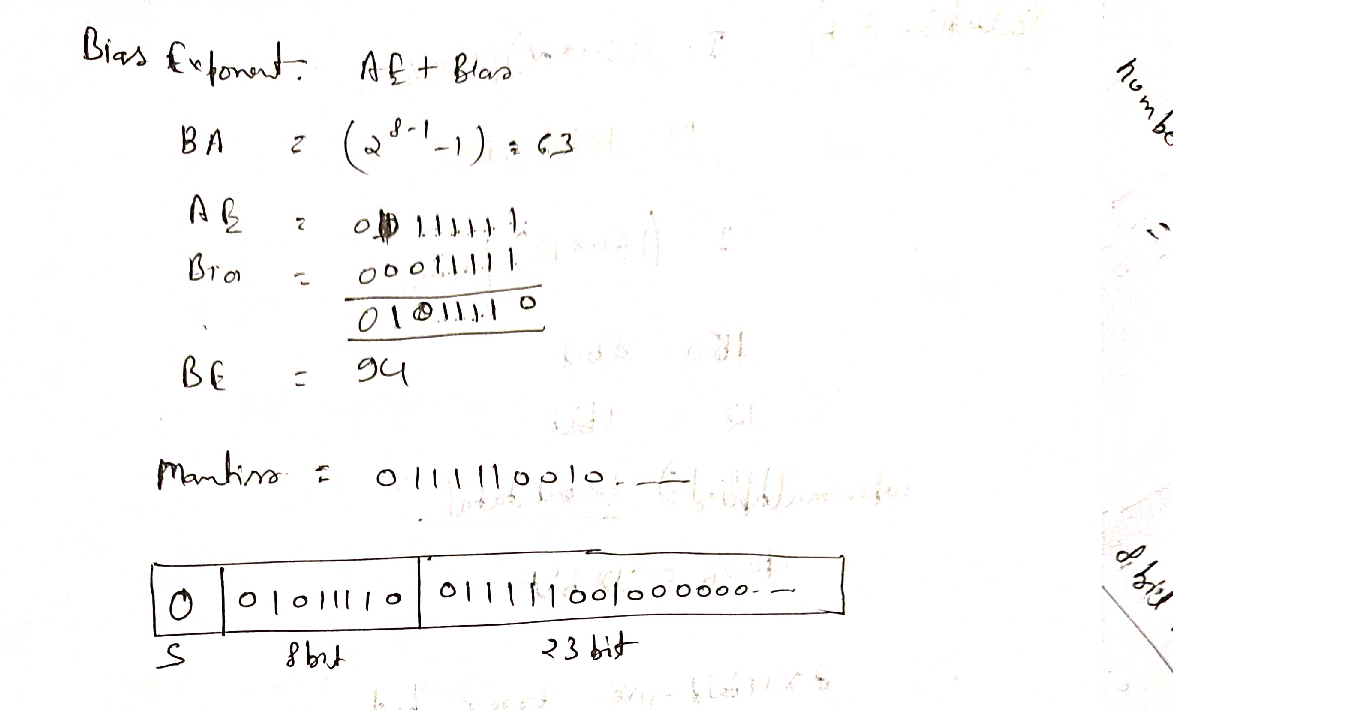 Bias Exponent: AE + Bias
BA = (2^8-1 -1) = 63
AE = 00111111
Bias = 00011111
01011110
BE = 94
Mantissa = 0111110010. —
0 01011110 011111001000000- —
S 8 bit 23 bit
numbe
=
8 bit